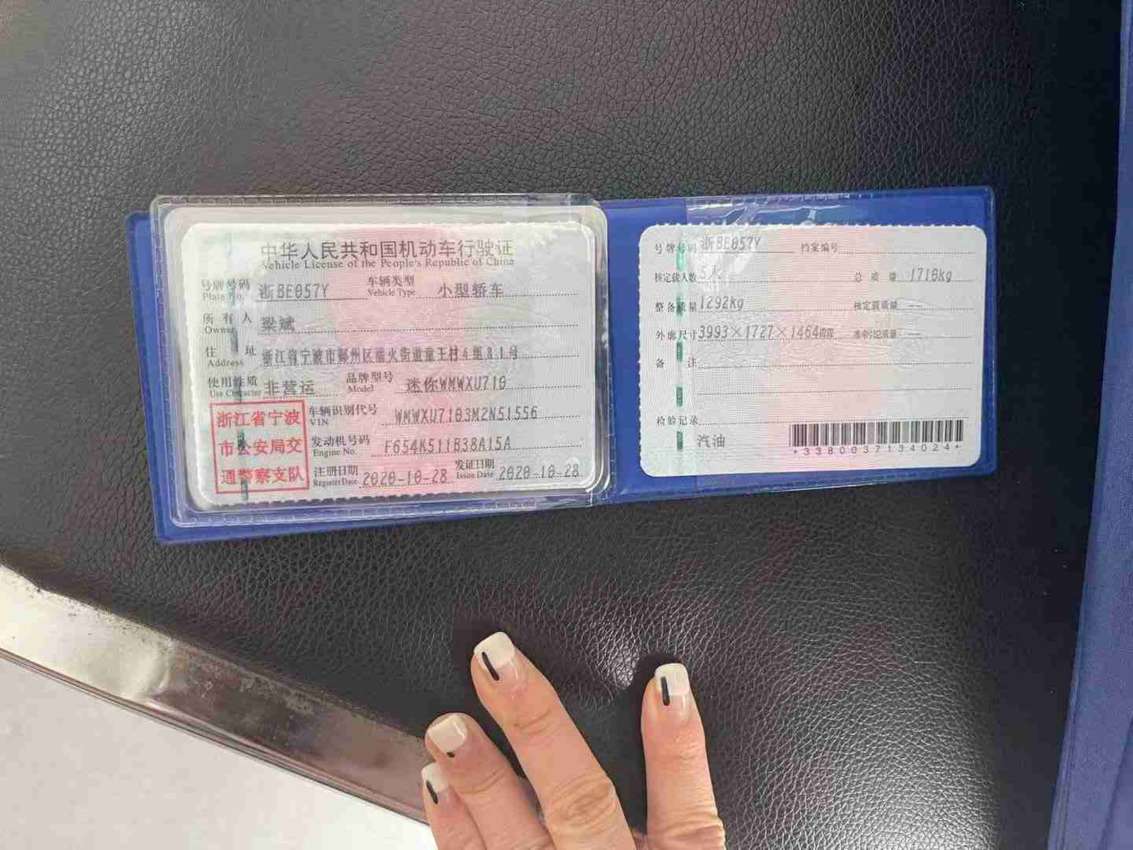 中华人民共和国机动车行驶证
Vehicle License of the People's Republic of China
号牌号码 浙BE057Y 车辆类型 小型轿车
Plate No. Vehicle Type
所有人 梁斌
Owner
住址 浙江省宁波市鄞州区 街道童王村4组81号
Address
使用性质 非营运 品牌型号 迷你WMWXU710
Use Character Model
浙江省宁波
市公安局交
通警察支队
车辆识别代号 WMWXU7103M2N51556
VIN
发动机号码 F654K511B38A15A
Engine No.
注册日期 2020-10-28 发证日期 2020-10-28
Register Date Issue Date
号牌号码 浙BE057Y 档案编号
核定载人数 5人 总质量 1710kg
整备质量 1292kg 核定载质量 --
外廓尺寸 3993×1727×1464mm 准牵引总质量 --
备注
检验记录
汽油
*3380037134024*